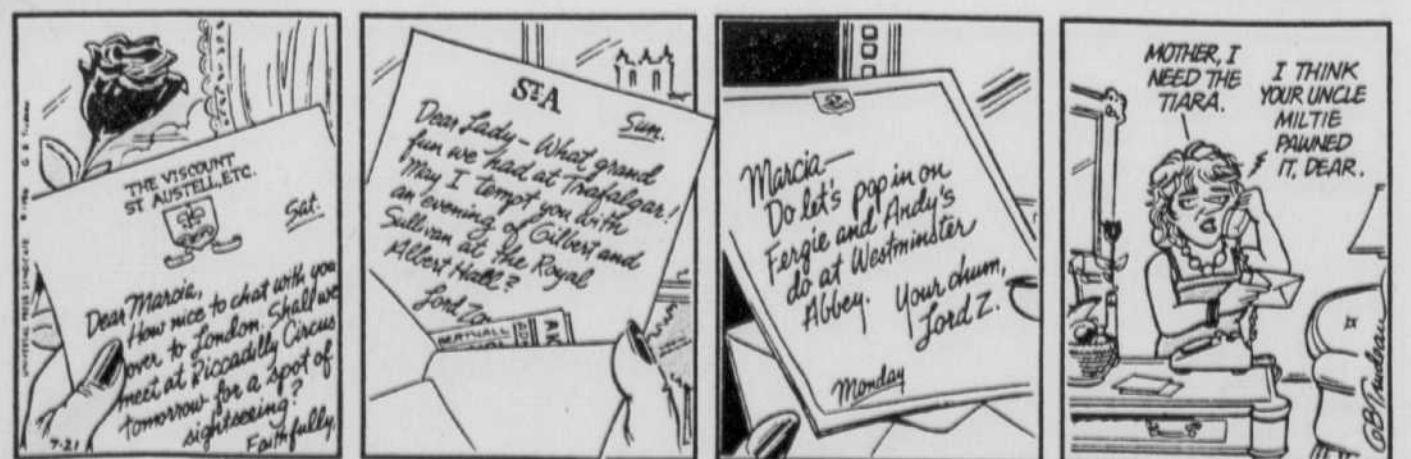 THE VISCOUNT
ST AUSTELL, ETC.
Sat.
Dear Marcia,
How nice to chat with you
over to London. Shall we
meet at Piccadilly Circus
tomorrow for a spot of
sightseeing?
Faithfully,
7-21
ST. A
Sun.
Dear Lady – What grand
fun we had at Trafalgar!
May I tempt you with
an evening of Gilbert and
Sullivan at the Royal
Albert Hall?
Lord Zo
Marcia—
Do let's pop in on
Fergie and Andy's
do at Westminster
Abbey.
Your chum,
Lord Z.
Monday
MOTHER, I
NEED THE
TIARA.
I THINK
YOUR UNCLE
MILTIE
PAWNED
IT, DEAR.
GBTrudeau